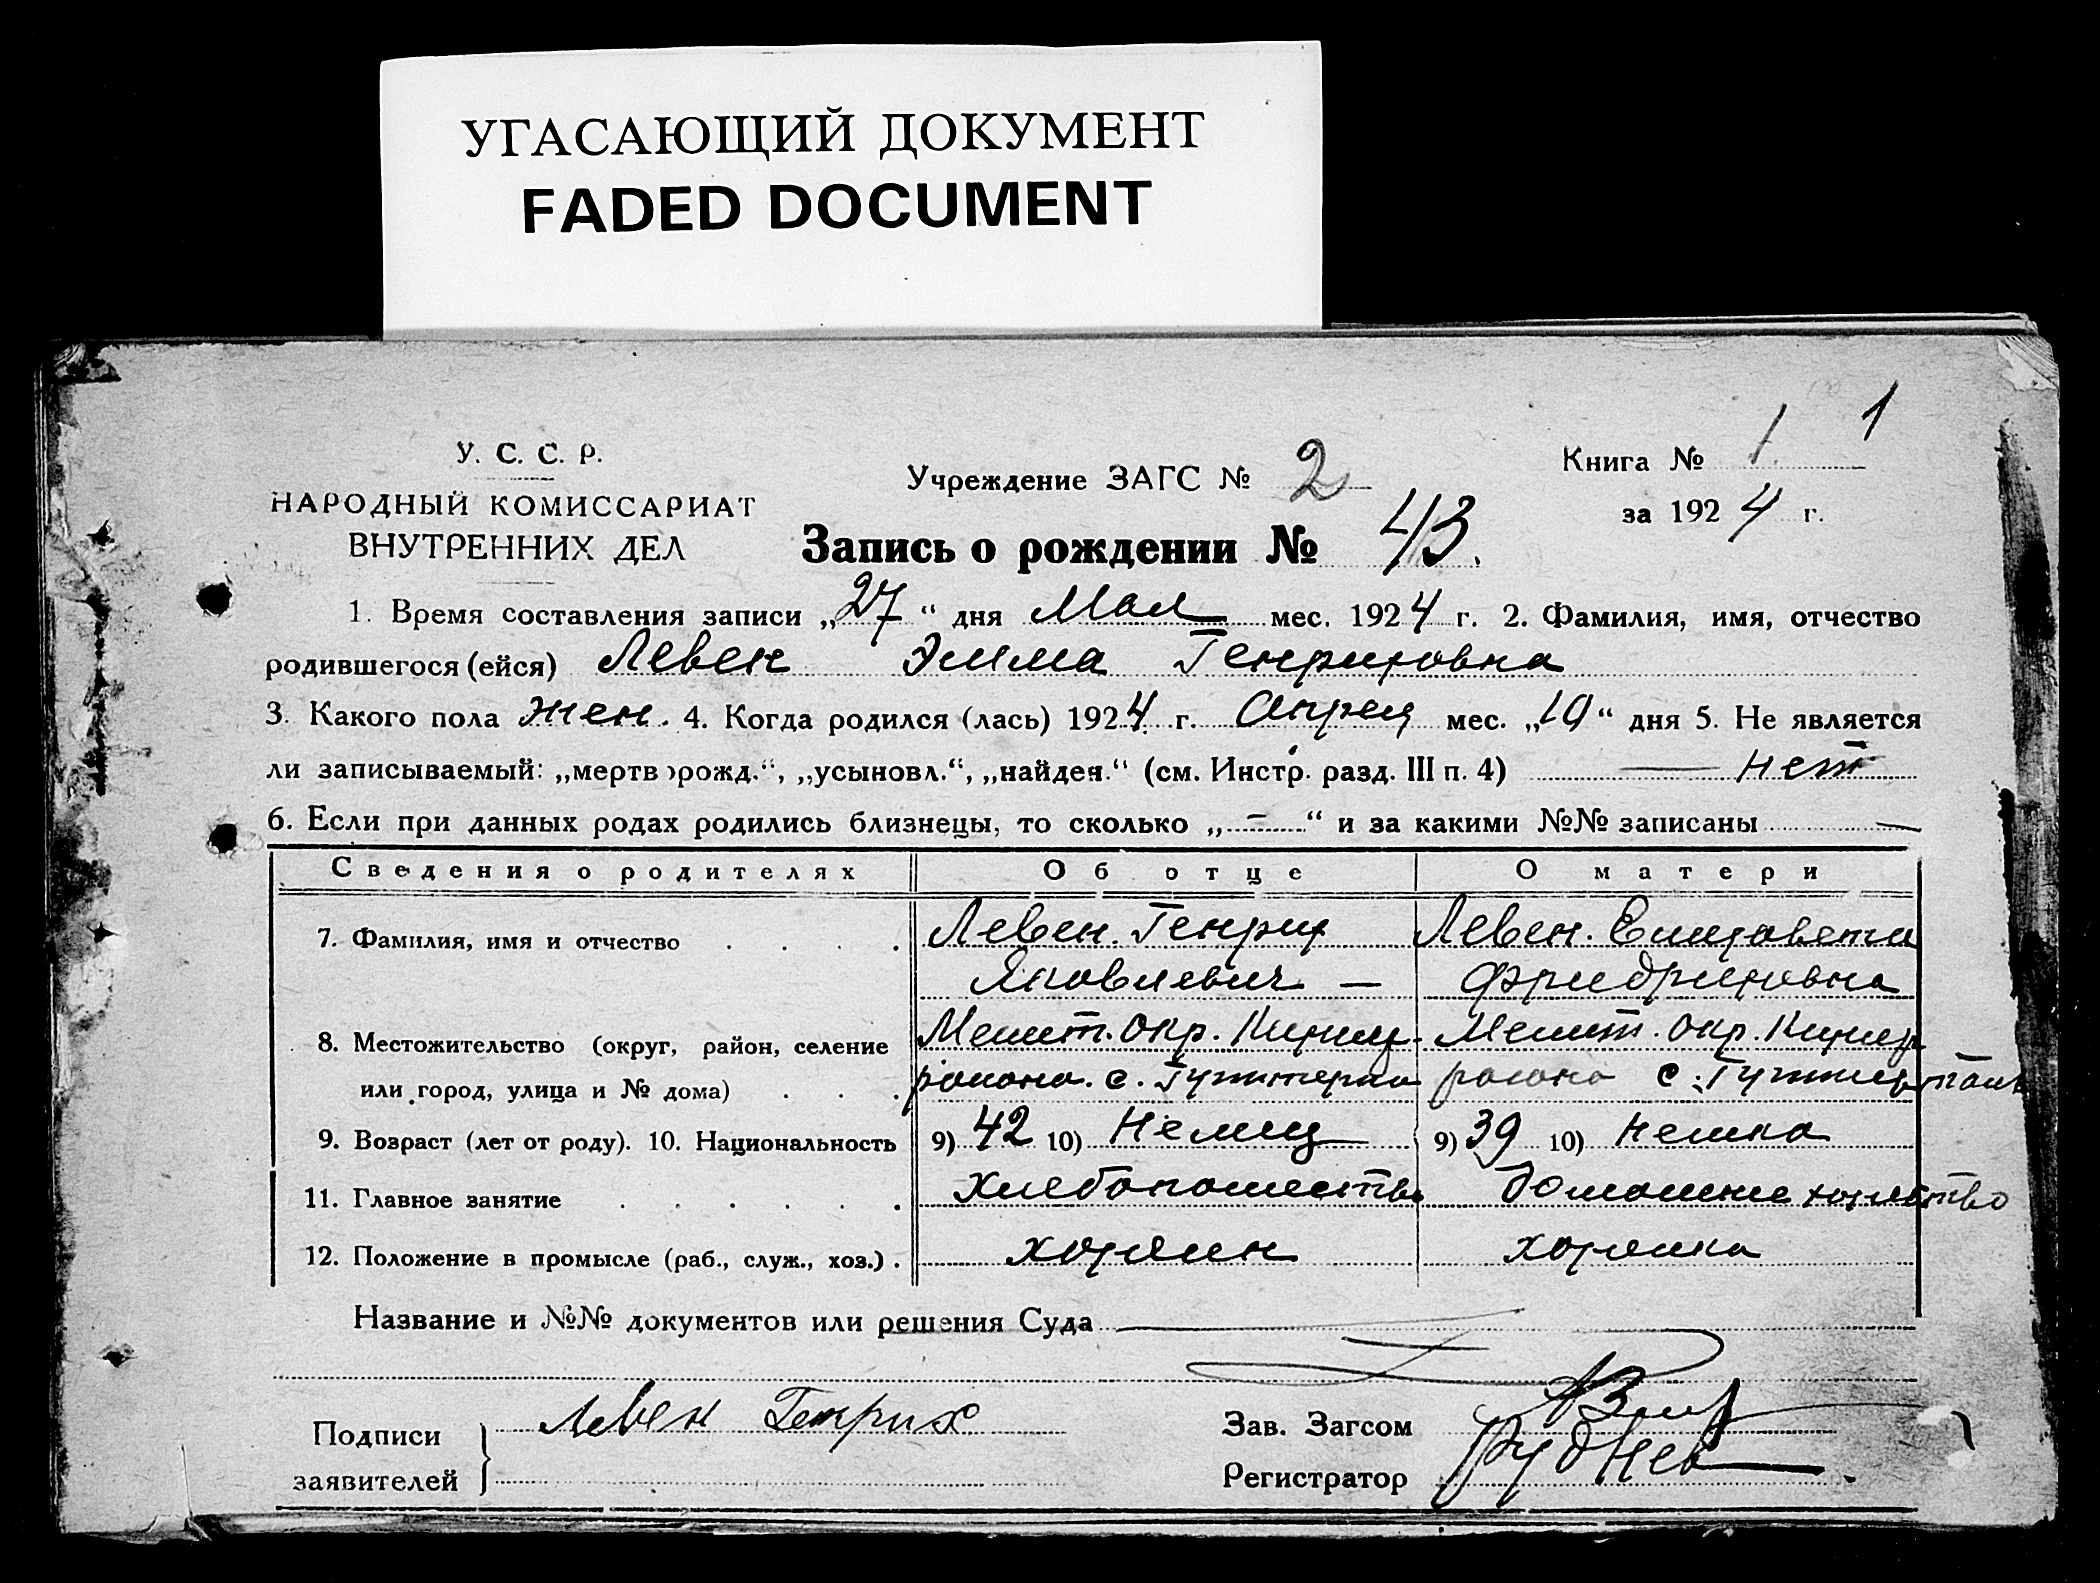 УГАСАЮЩИЙ ДОКУМЕНТ
FADED DOCUMENT
1
У. С. С. Р.
НАРОДНЫЙ КОМИССАРИАТ
ВНУТРЕННИХ ДЕЛ
Учреждение ЗАГС № 2
Книга № 1
за 1924 г.
Запись о рождении № 43.
1. Время составления записи „27“ дня Мая мес. 1924 г. 2. Фамилия, имя, отчество
родившегося (ейся) Левен Эмма Генриховна
3. Какого пола жен. 4. Когда родился (лась) 1924 г. Апреля мес. „19“ дня 5. Не является
ли записываемый: „мертворожд.“, „усыновл.“, „найден.“ (см. Инстр. разд. III п. 4) — нет
6. Если при данных родах родились близнецы, то сколько „–“ и за какими №№ записаны —
Сведения о родителях Об отце О матери
7. Фамилия, имя и отчество . . . . Левен. Генрих Левен. Елизавета
Яковлевич — Фридриховна
8. Местожительство (округ, район, селение Мелит. окр. Мелит. окр.
или город, улица и № дома) . . . района. с. района с.
9. Возраст (лет от роду). 10. Национальность 9) 42 10) Немец 9) 39 10) немка
11. Главное занятие . . . . . . хлебопашество домашнее хозяйство
12. Положение в промысле (раб., служ., хоз.) . хозяин хозяйка
Название и №№ документов или решения Суда
Подписи
заявителей
Левен Генрих
Зав. Загсом
Регистратор Руднев